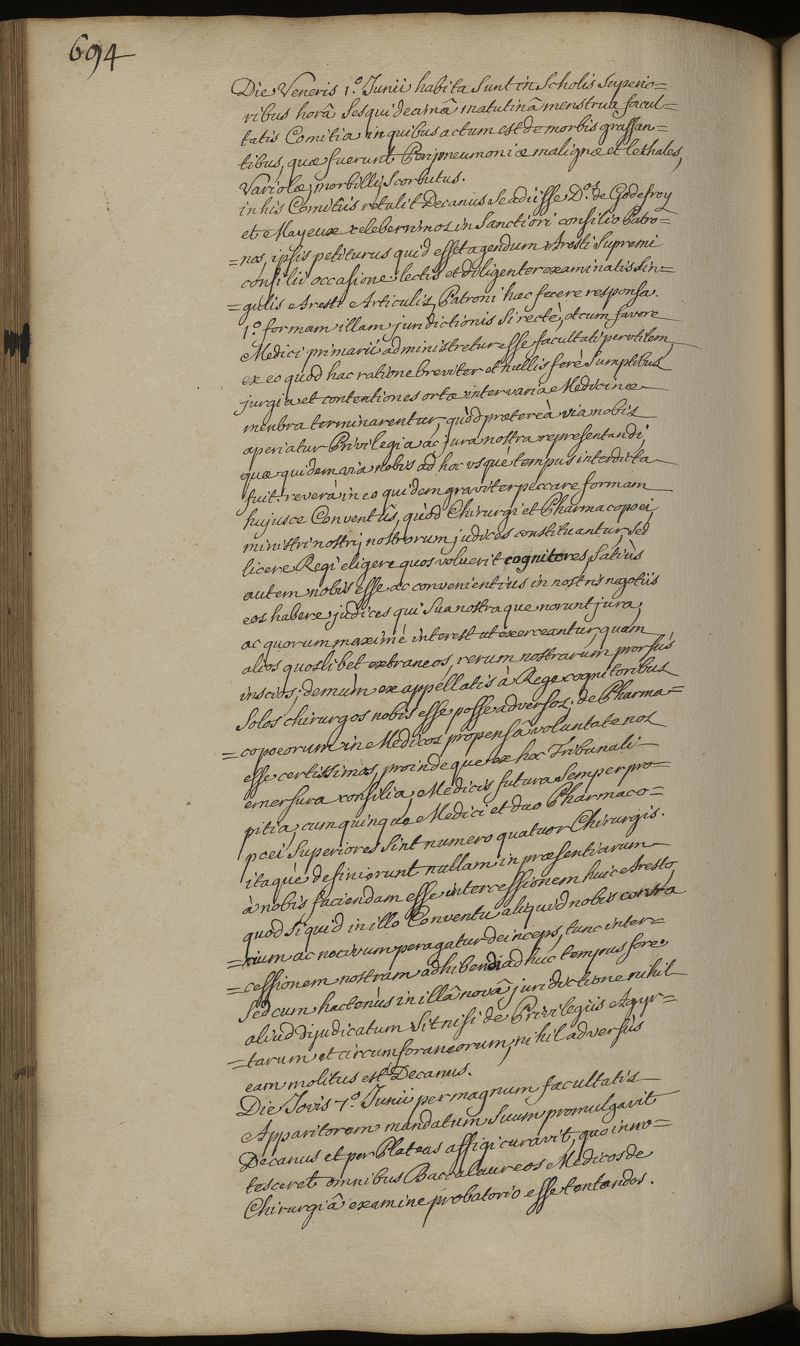 694
Die Veneris 1.º Junii habita sunt in Scholis Superio=
ribus horâ sesqui decimâ matutinâ menstrua facul=
tatis Comitia in quibus actum est de morbis grassan=
tibus, quæ fuerunt Peripneumoniæ malignæ et lethales,
Variolæ, morbilli, Scorbutus.
in his Comitiis retulit Decanus se adiisse D.os de Godefroy
et Mayeux celeberrimos in Sanctiori consilio Patro=
=nos, ipsis petiturus quid esset agendum Aresti Supremi
consilii occasione. lectis et diligenter examinatis sin=
=gulis Aresti Articulis, Patroni hæc fecere responsa.
1.º formam illam jurisdictionis si rectè, et cum favore
Medici primarii administretur esse facultati perutilem,
ex eo quòd hac ratione breviter et nullis ferè sumptibus
jurgia et contentiones ortæ inter varia Medicinæ
membra terminarentur, quòd præterea via nobis
aperiatur Privilegia ac jura nostra representandi,
quæ quidem via nobis ad hoc usque tempus interdicta
fuit. reverà in eo quidem graviter peccare formam
hujusce Conventûs, quòd Chirurgi et Pharmacopœi,
ministri nostri, nostrorum judices constituantur, sed
licere Regi eligere quos voluerit cognitores, satiùs
autem nobis esse ac convenientius in nostris negotiis
eos habere judices qui sua nostraque norunt jura,
ac quorum maximè interest ut exerceantur, quam
alios quoslibet extraneos, rerum nostrarum prorsùs
inscios; demùm ex appellatis à Rege cognitoribus
solos chirurgos nobis esse posse adversos; de Pharma=
=copœorum in Medicos propensâ voluntate nos
esse certissimos, proindeque ex hoc Tribunali
emersura consilia, Medicis futura semper pro=
pitia, cum quinque Medici et duo Pharmaco=
pœi Superiores sint numero quatuor Chirurgis.
itaque definierunt nullam in præsentiarum
à nobis faciendam esse intercessionem huic Aresto,
quod si quid in illo Conventu aliquid nobis contra
=rium ac nocivum peragatur deinceps, tunc inter=
=cessionem nostram adhibendi adhuc tempus fore.
Sed cum hactenùs in illâ novâ jurisdictione nihil
aliud dijudicatum sit nisi de Privilegiis Agyr=
=tarum et circumforaneorum, nihil adversùs
eam molitus est Decanus.
Die Jovis 7.º Junii per magnum facultatis
Apparitorem mandatum suum promulgavit
Decanus et per Plateas affigi curavit, quo inno=
tesceret omnibus Baccalaureos Medicos de
Chirurgiâ examine probatorio esse tentandos.